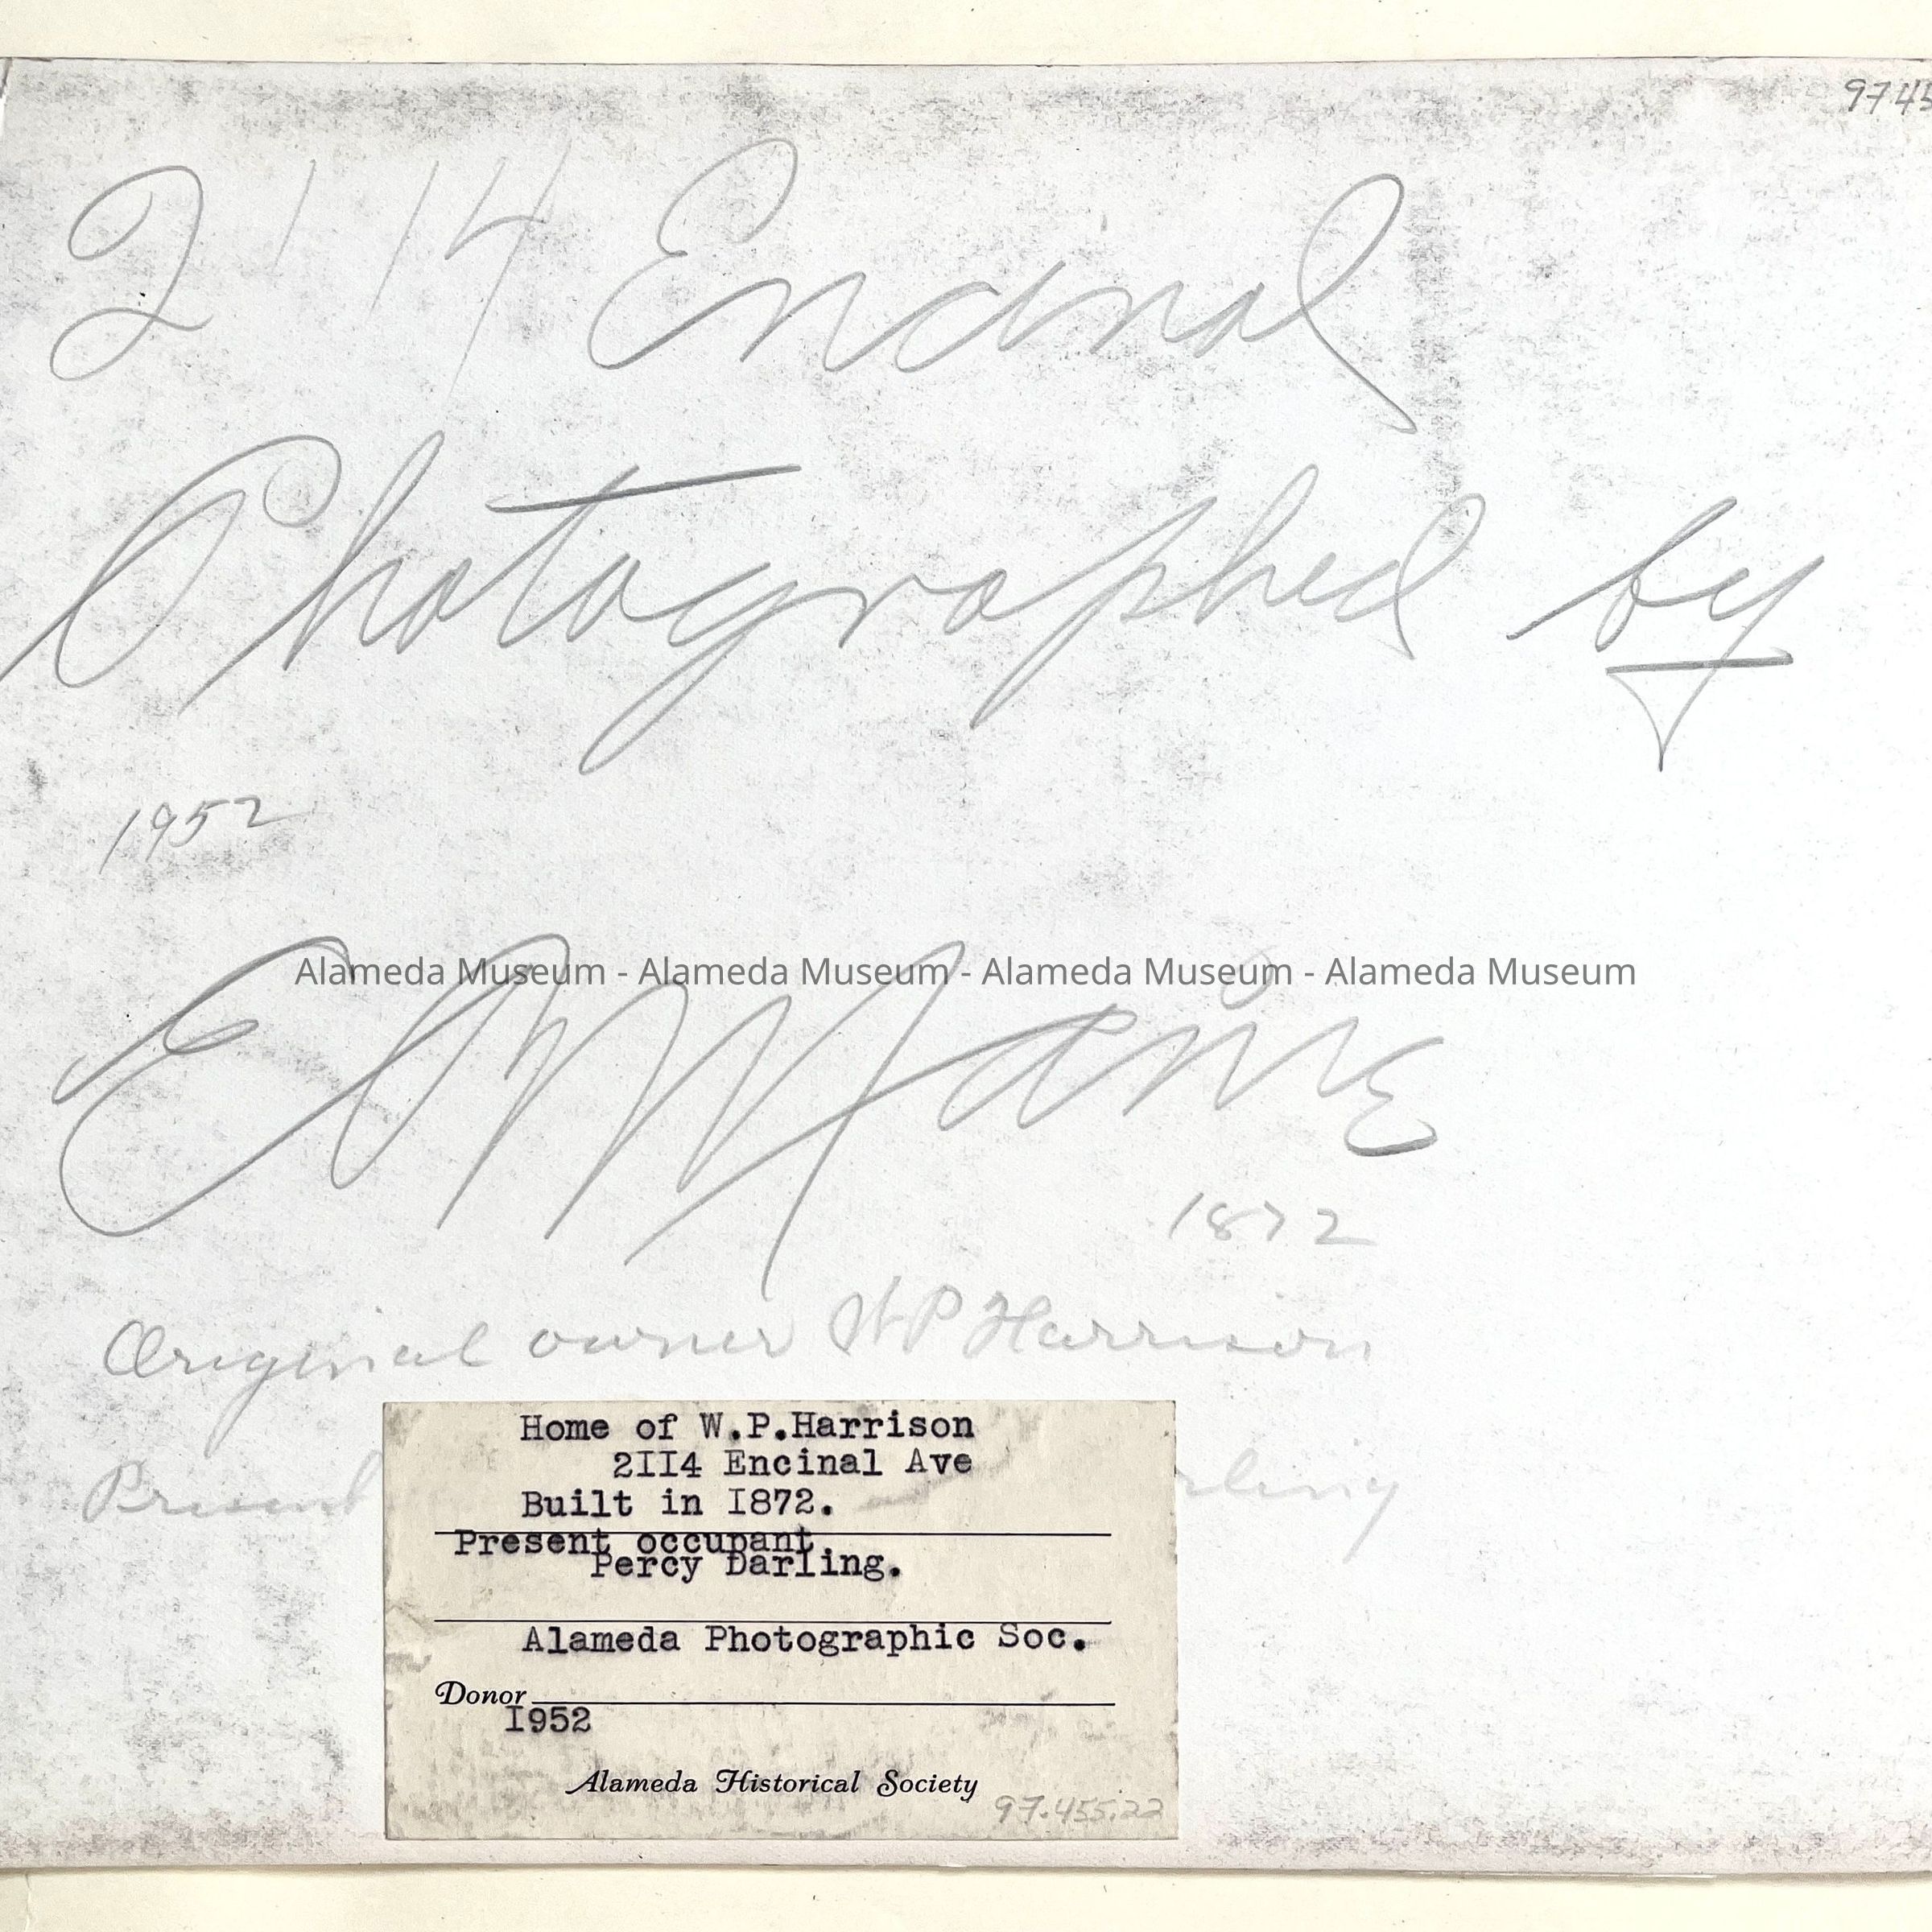 9745
2114 Encinal
Photographed by
1952
Alameda Museum - Alameda Museum - Alameda Museum - Alameda Museum
1872
Original owner W P Harrison
Present rling
Home of W.P.Harrison
2II4 Encinal Ave
Built in I872.
Present occupant
Percy Darling.
Alameda Photographic Soc.
Donor
I952
Alameda Historical Society
97.455.22